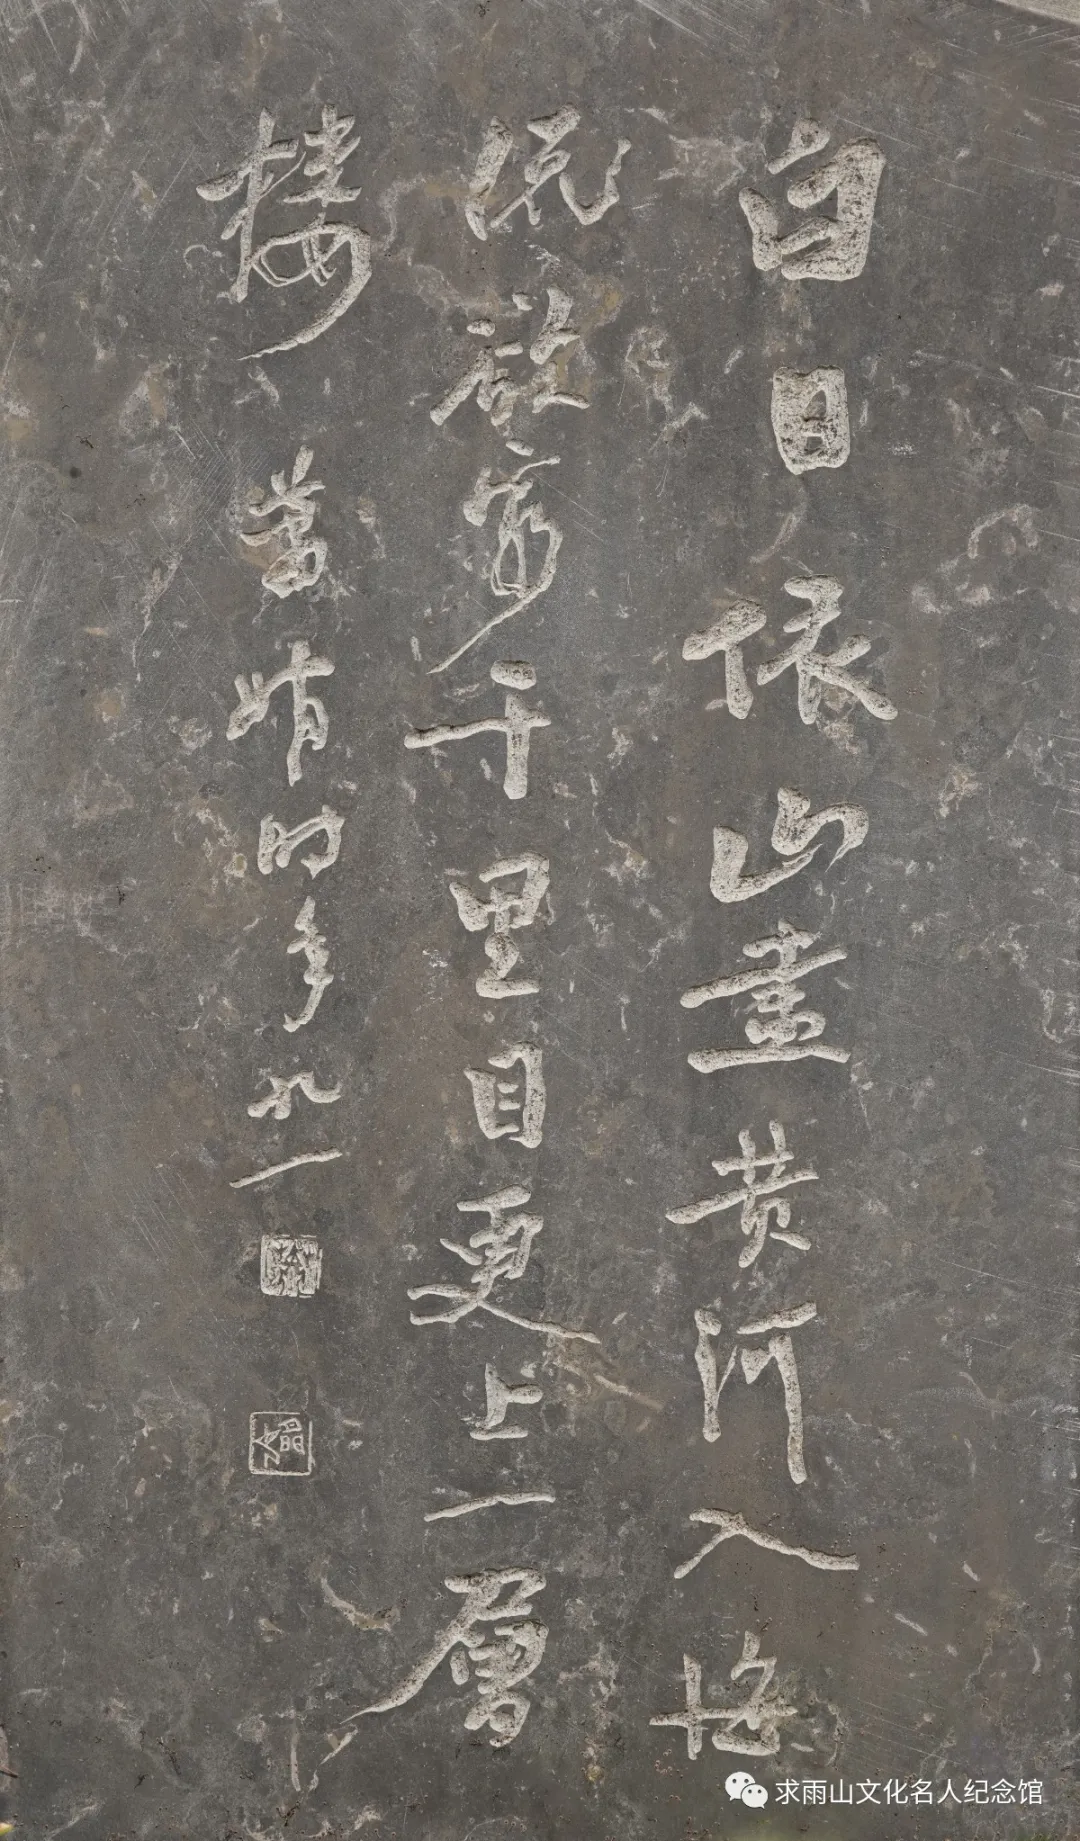 白日依山盡黄河入海
流欲窮千里目更上一層
樓 蕭嫻时年九一
求雨山文化名人纪念馆